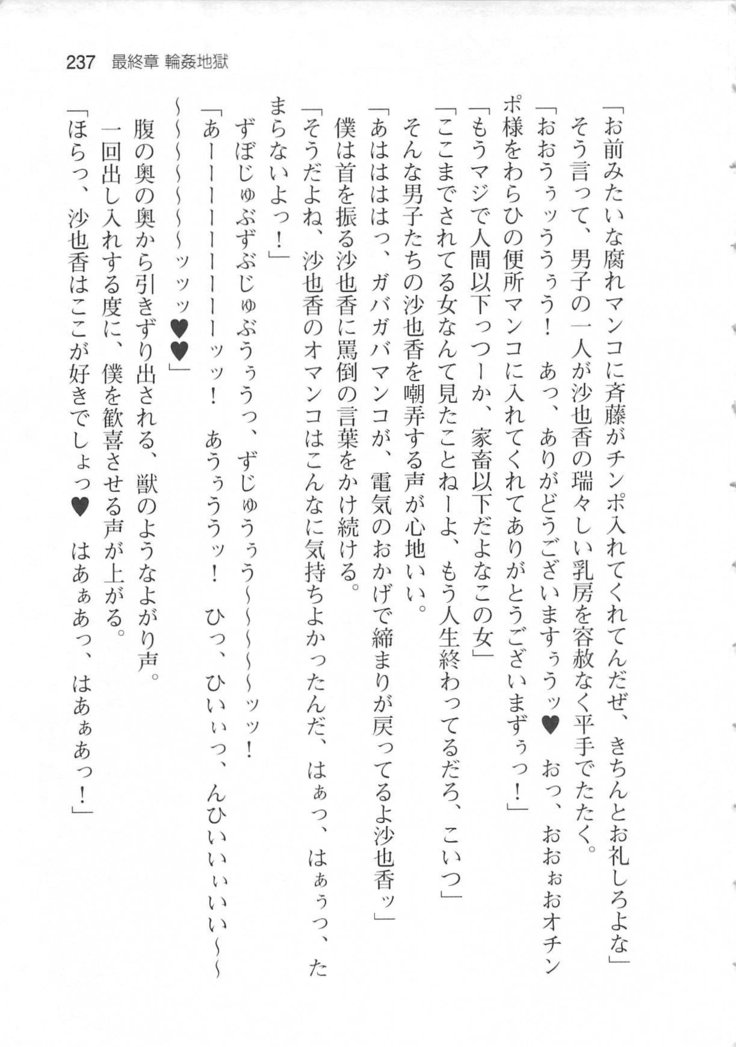 237 最終章 輪姦地獄
「お前みたいな腐れマンコに斉藤がチンポ入れてくれてんだぜ、きちんとお礼しろよな」
そう言って、男子の一人が沙也香の瑞々しい乳房を容赦なく平手でたたく。
「おおうぅッううぅう！　あっ、ありがどうございますぅうッ♥　おっ、おおぉおオチン
ポ様をわらひの便所マンコに入れてくれてありがとうございまずぅっ！」
「もうマジで人間以下っつーか、家畜以下だよなこの女」
「ここまでされてる女なんて見たことねーよ、もう人生終わってるだろ、こいつ」
そんな男子たちの沙也香を嘲弄する声が心地いい。
「あははははっ、ガバガバマンコが、電気のおかげで締まりが戻ってるよ沙也香ッ」
僕は首を振る沙也香に罵倒の言葉をかけ続ける。
「そうだよね、沙也香のオマンコはこんなに気持ちよかったんだ、はぁっ、はぁぅっ、た
まらないよっ！」
ずぼじゅぶずぶじゅぶうぅうっ、ずじゅうぅう～～～～～ッッ！
「あーーーーーーーーッッ！　あうぅううッ！　ひっ、ひいぃっ、んひいいいぃいい～～
～～～～～～～ッッッ♥♥」
腹の奥の奥から引きずり出される、獣のようなよがり声。
一回出し入れする度に、僕を歓喜させる声が上がる。
「ほらっ、沙也香はここが好きでしょっ♥　はあぁあっ、はあぁあっ！」